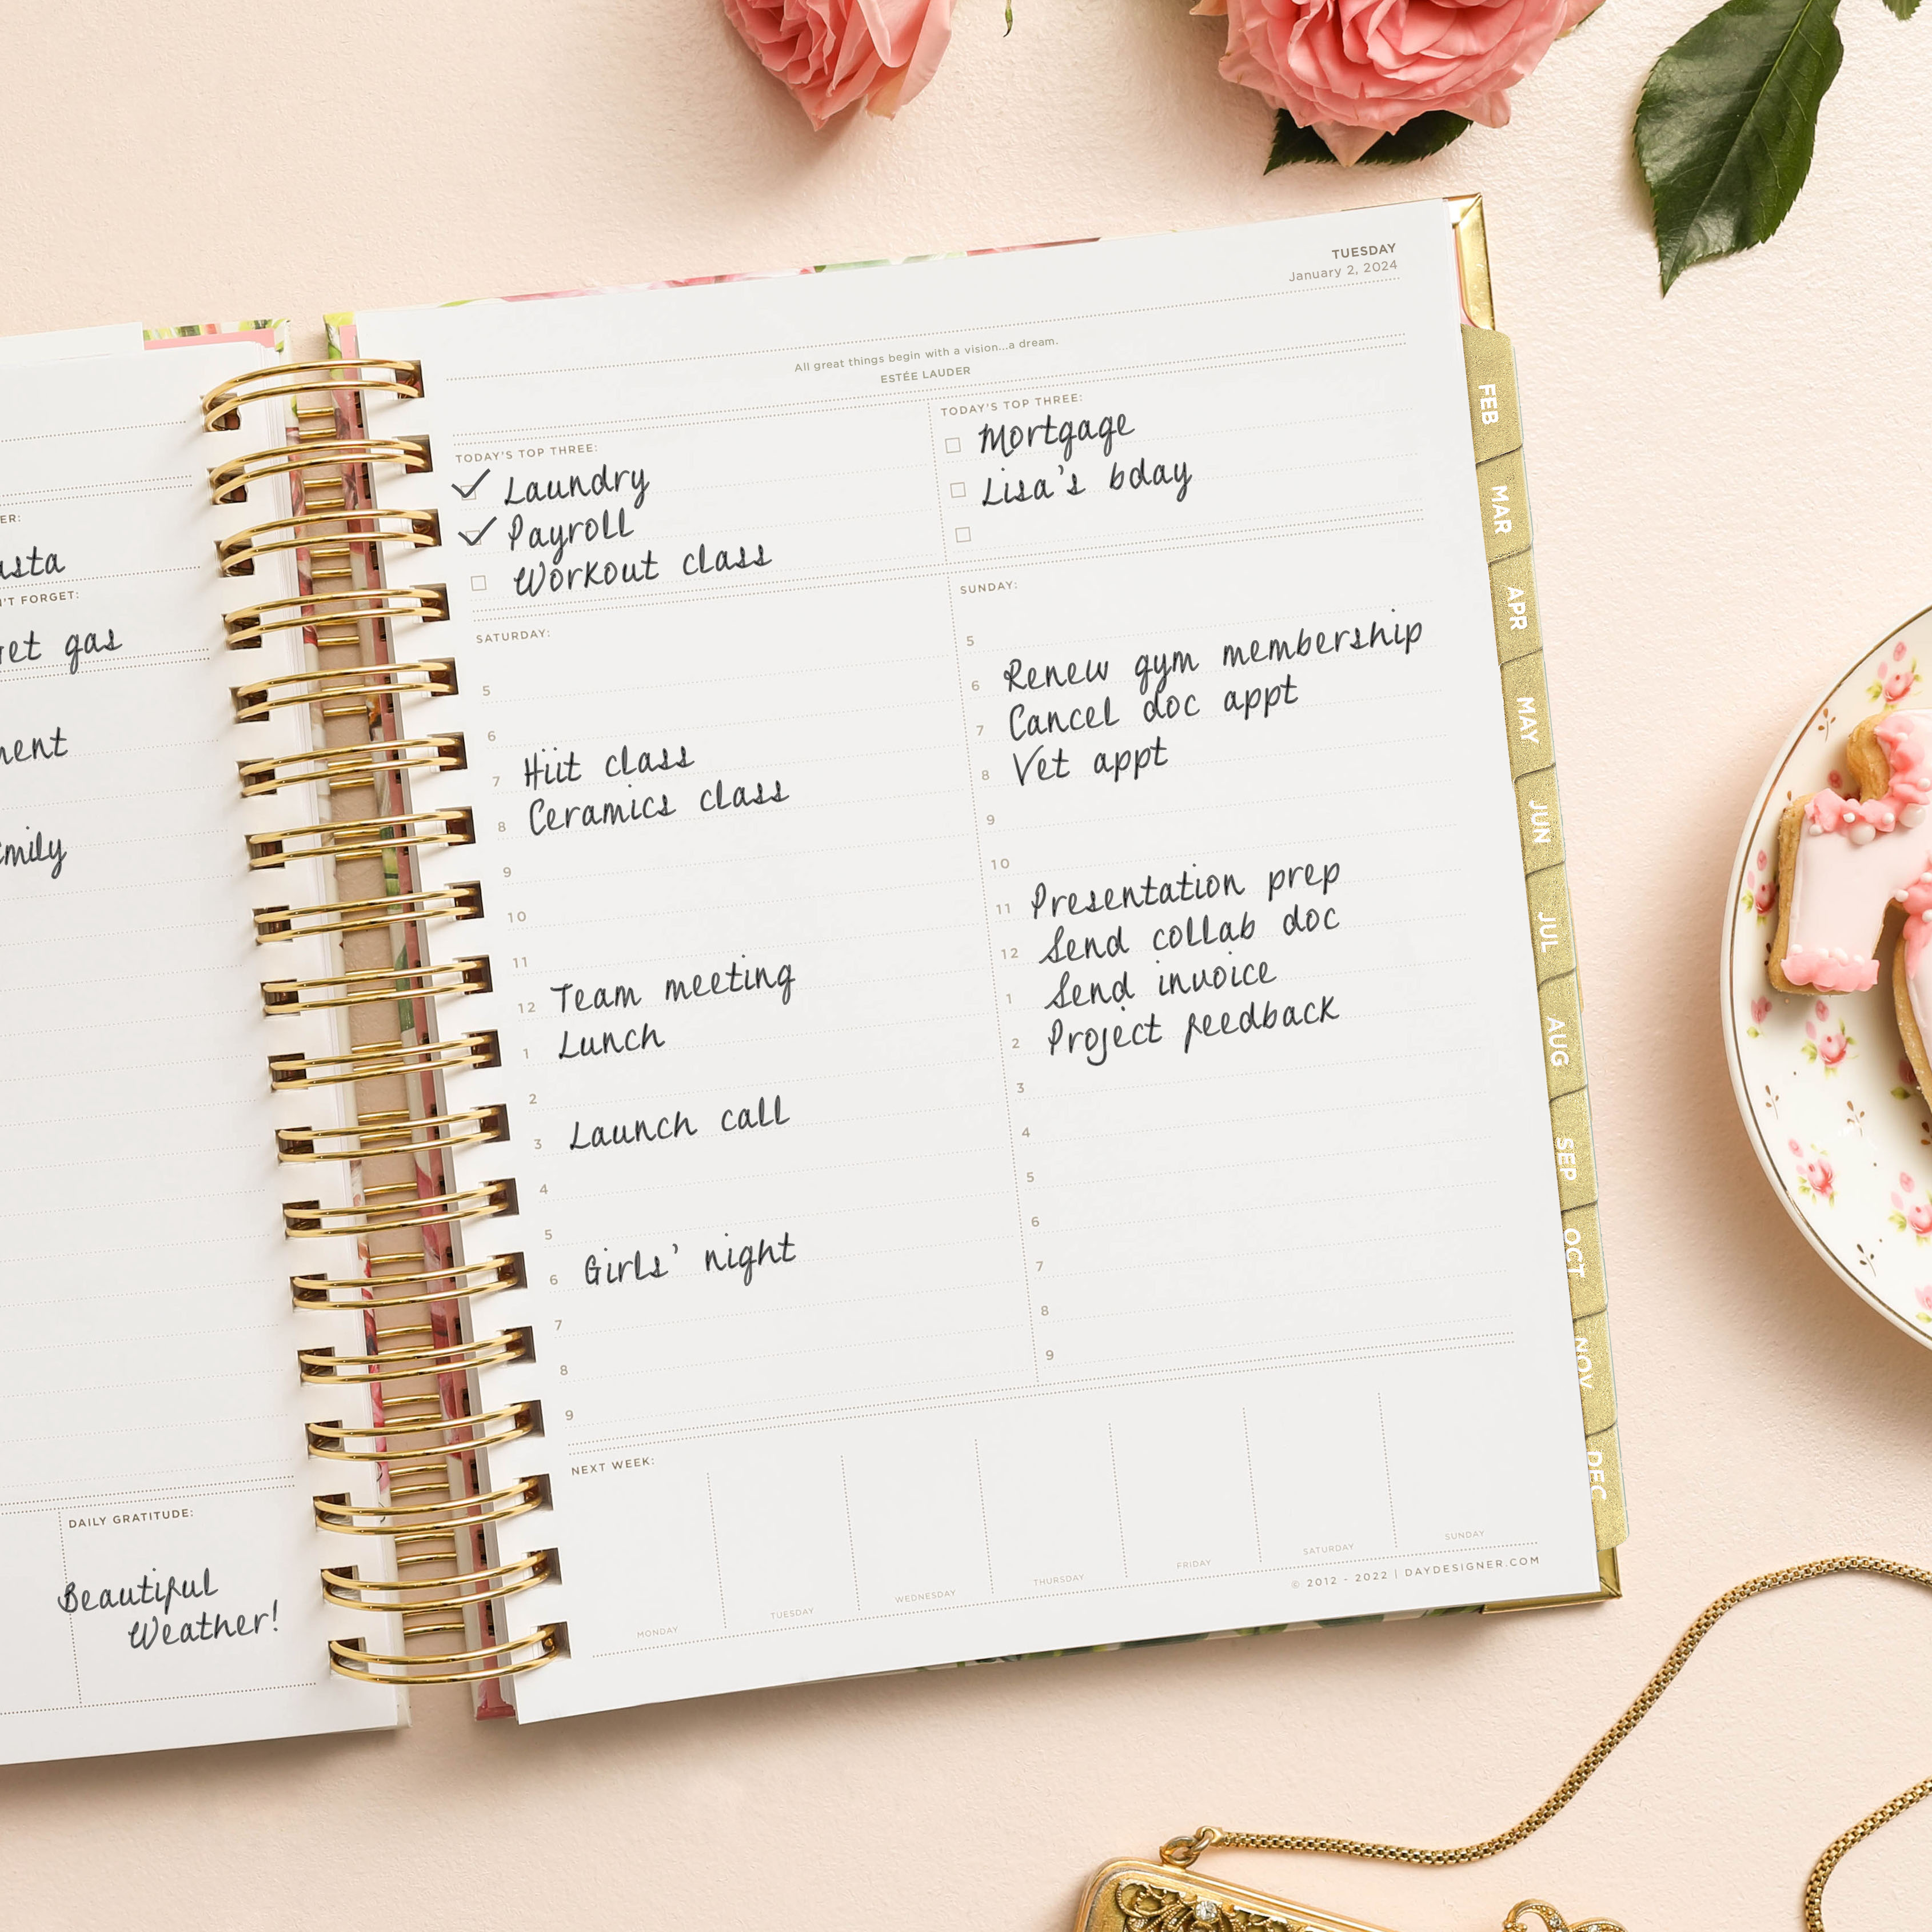 ER:
NT FORGET:
gas
DAILY GRATITUDE:
Beautiful
Weather!
TUESDAY
January 2, 2024
All great things begin with a vision...a dream.
ESTÉE LAUDER
TODAY'S TOP THREE:
Laundry
Payroll
Workout class
TODAY'S TOP THREE:
Mortgage
Lisa's bday
SATURDAY:
5
6
7 Hiit class
8 Ceramics class
9
10
11
12 Team meeting
1 Lunch
2
3 Launch call
4
5
6 Girls' night
7
8
9
SUNDAY:
5
6 Renew gym membership
7 Cancel doc appt
8 Vet appt
9
10
11 Presentation prep
12 Send collab doc
1 Send invoice
2 Project feedback
3
4
5
6
7
8
9
NEXT WEEK:
MONDAY
TUESDAY
WEDNESDAY
THURSDAY
FRIDAY
SATURDAY
SUNDAY
© 2012 - 2022 | DAYDESIGNER.COM
FEB
MAR
APR
MAY
JUN
JUL
AUG
SEP
OCT
NOV
DEC